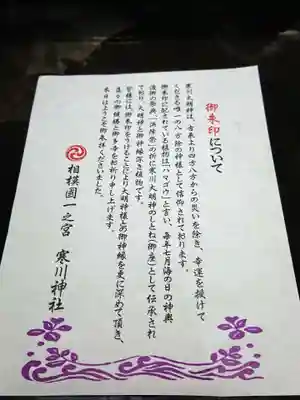 御朱印について
寒川大明神は、古来より四方八方からの災いを除き、幸運を授けて
くださる唯一の八方除の神様として信仰されて居ります。
御朱印に記されている植物は「ハマゴウ」と言い、毎年七月海の日の神輿
渡御の祭典「浜降祭」の折に寒川大明神のしとね（御座）として伝承され
て居り、大明神と御神縁深き植物です。
皆様には、御朱印をうけることにより大明神様との御神縁を更に深めて頂き、
益々の御健勝と御多幸をお祈り申し上げます。
本日はようこそ御参拝くださいました。
相模國一之宮 寒川神社